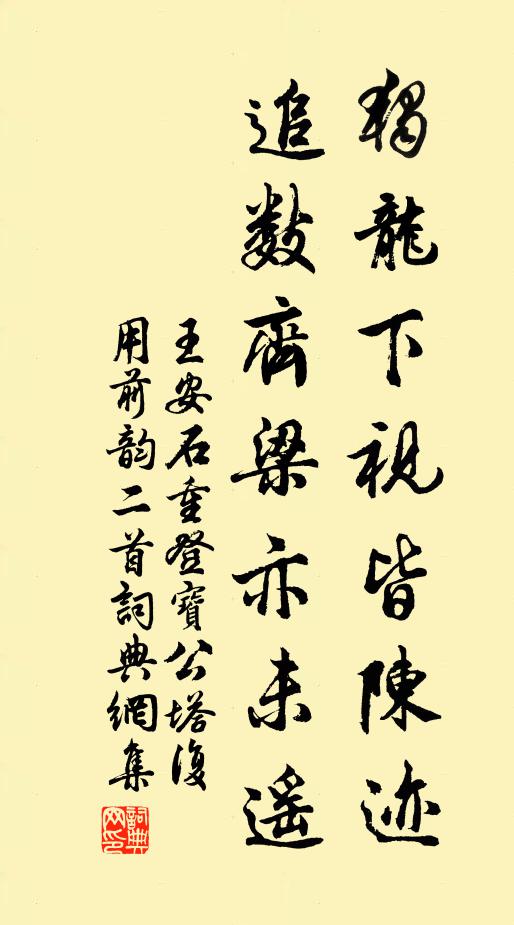 獨龍下視皆陳迹
追數齊梁亦未遥
王安石重登寶公塔復
用前韵二首詞典網集
詞典
网印